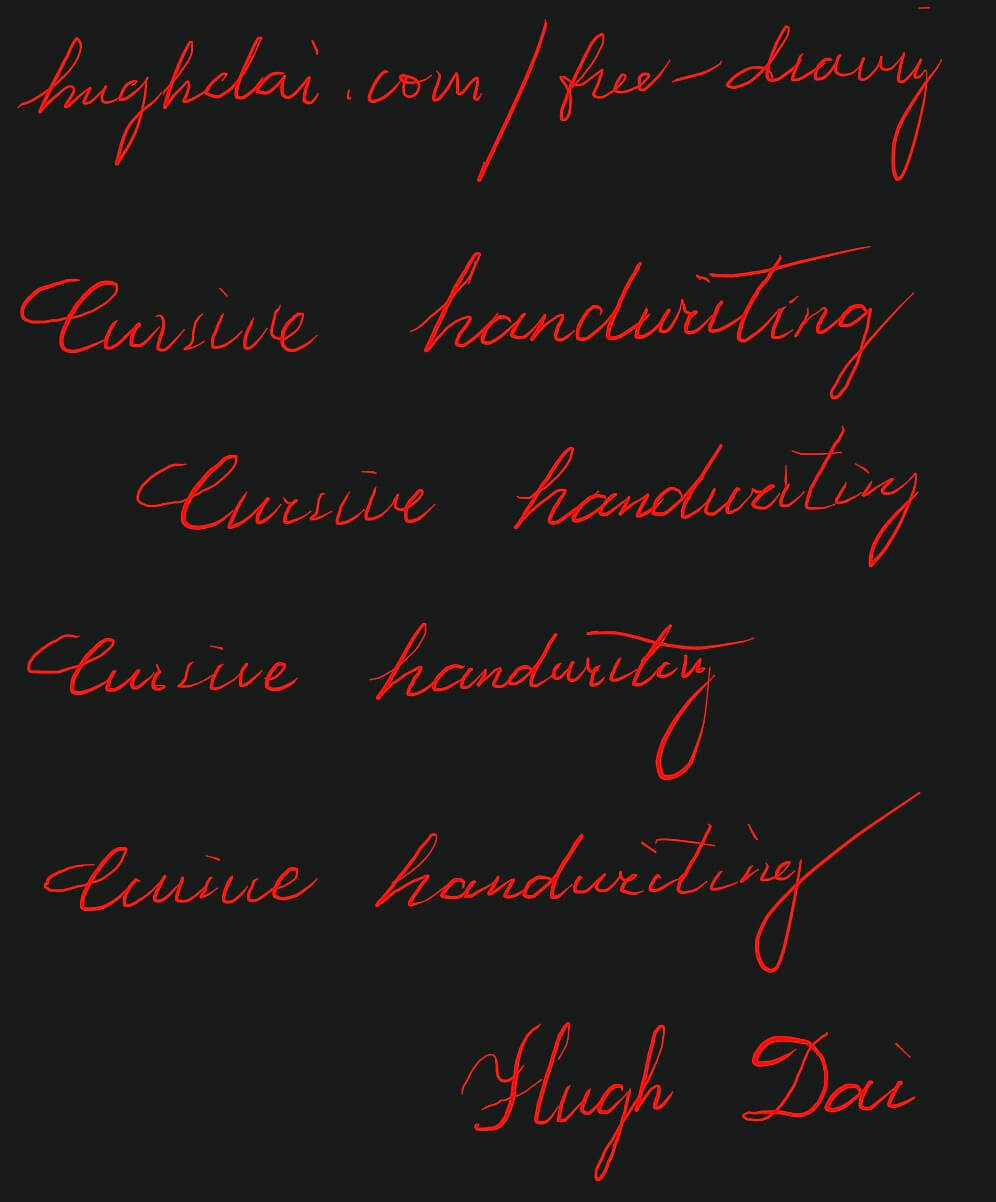 hughdai.com/free-drawing
Cursive handwriting
Cursive handwriting
Cursive handwriting
Cursive handwriting
Hugh Dai